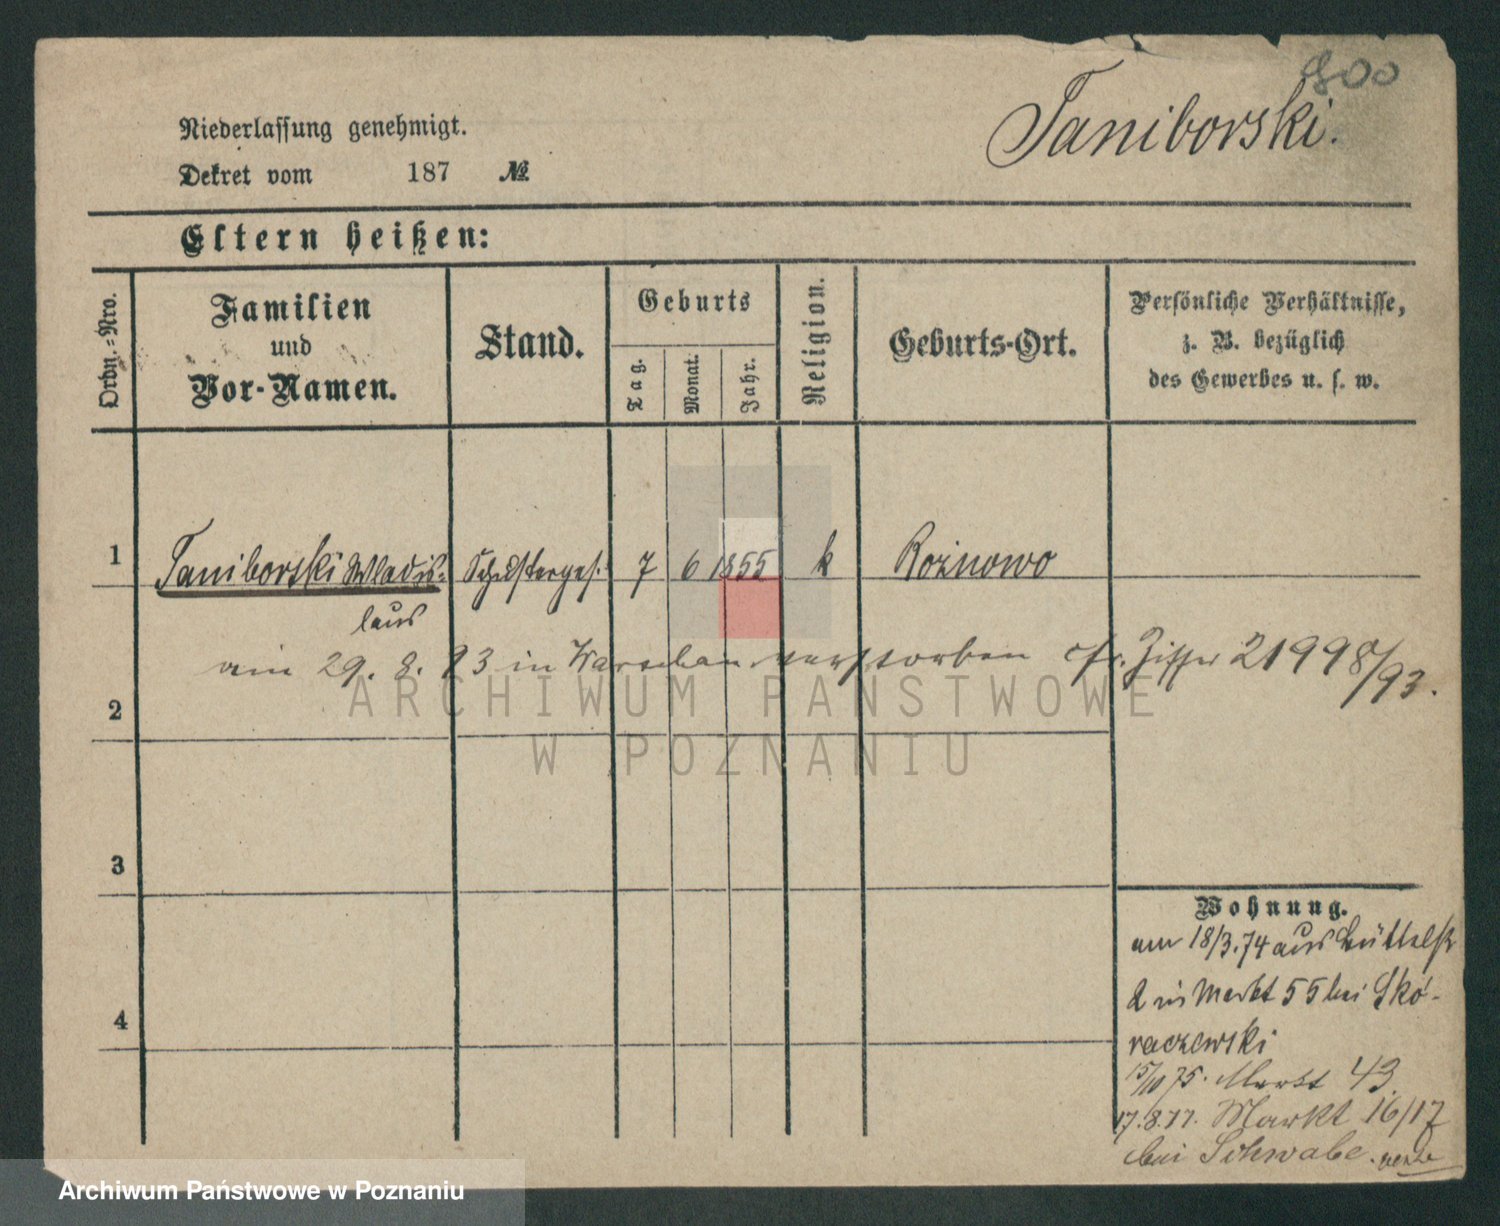 800
Taniborski.
Niederlassung genehmigt.
Dekret vom 187 №
Eltern heißen:
Ordn.-Nro.
Familien
und
Vor-Namen.
Stand.
Geburts
Tag.
Monat.
Jahr.
Religion.
Geburts-Ort.
Persönliche Verhältnisse,
z. B. bezüglich
des Gewerbes u. s. w.
1 Taniborski Wladis- Schusterges. 7 6 1855 k Rożnowo
laus
am 29. 8. 93 in Warschau verstorben cfr. Ziffer 21998/93.
2
3
4
Wohnung.
am 18/3.74 aus Büttelstr
2 in Markt 55 bei Skó-
raczewski
15/10 75. Markt 43.
17.8.77. Markt 16/17
bei Schwabe.
ARCHIWUM PAŃSTWOWE
W POZNANIU
Archiwum Państwowe w Poznaniu